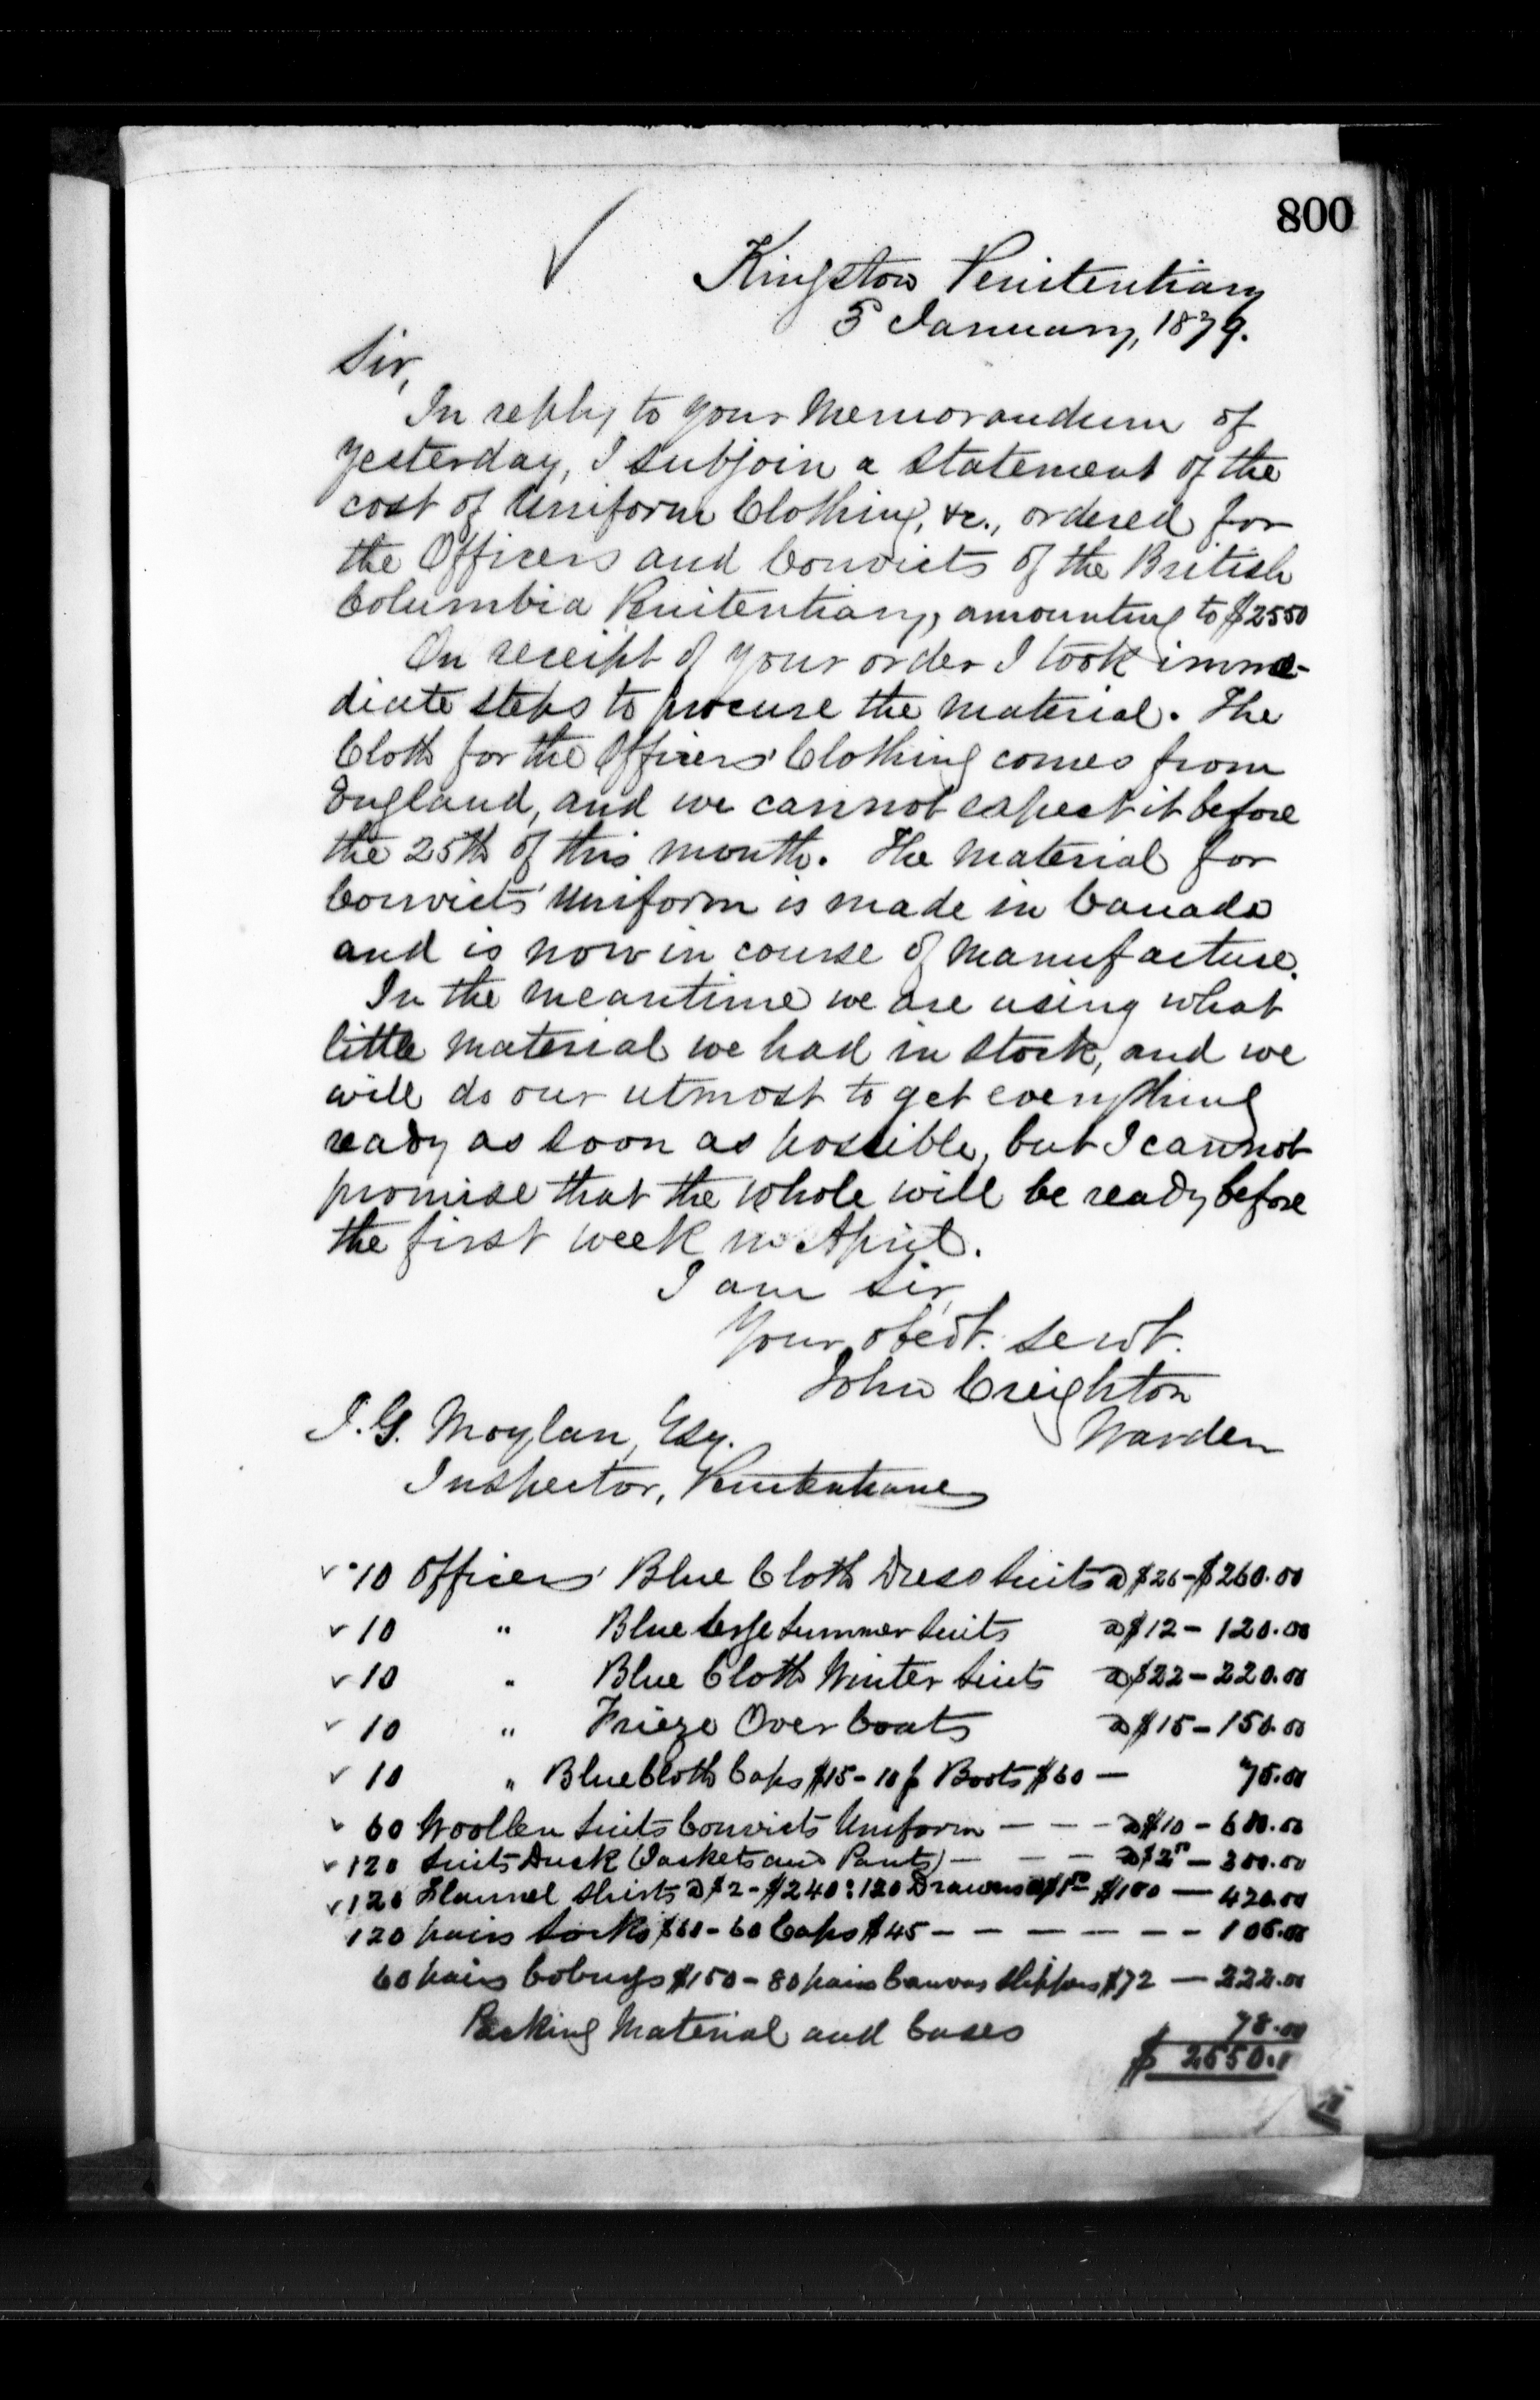 800
Kingston Penitentiary
5 January, 1879.
Sir,
In reply to your Memorandum of
yesterday, I subjoin a statement of the
cost of Uniform Clothing, &c., ordered for
the Officers and Convicts of the British
Columbia Penitentiary, amounting to $2550
On receipt of your order I took imme-
diate steps to procure the material. The
Cloth for the Officers' Clothing comes from
England, and we cannot expect it before
the 25th of this month. The material for
Convicts' Uniform is made in Canada
and is now in course of manufacture.
In the meantime we are using what
little material we had in stock, and we
will do our utmost to get everything
ready as soon as possible, but I cannot
promise that the whole will be ready before
the first week in April.
I am Sir,
Your obedt. servt.
John Creighton
Warden
J. G. Moylan, Esq.
Inspector, Penitentiaries
✓ 10 Officers' Blue Cloth Dress Suits @ $26 - $260.00
✓ 10 " Blue Serge Summer Suits @ $12 - 120.00
✓ 10 " Blue Cloth Winter Suits @ $22 - 220.00
✓ 10 " Frieze Over Coats @ $15 - 150.00
✓ 10 " Blue Cloth Caps $15 - 10 p Boots $60 - 75.00
✓ 60 Woollen Suits Convicts Uniform - - - @ $10 - 600.00
✓ 120 Suits Duck (Jackets and Pants) - - - @ $2.50 - 300.00
✓ 120 Flannel Shirts @ $2 - $240 : 120 Drawers @ $1.50 $180 - 420.00
120 pairs Socks $60 - 60 Caps $45 - - - - - - - 105.00
60 pairs Cobourgs $150 - 80 pairs Canvas Slippers $72 - 222.00
Packing Material and Cases 78.00
$ 2550.